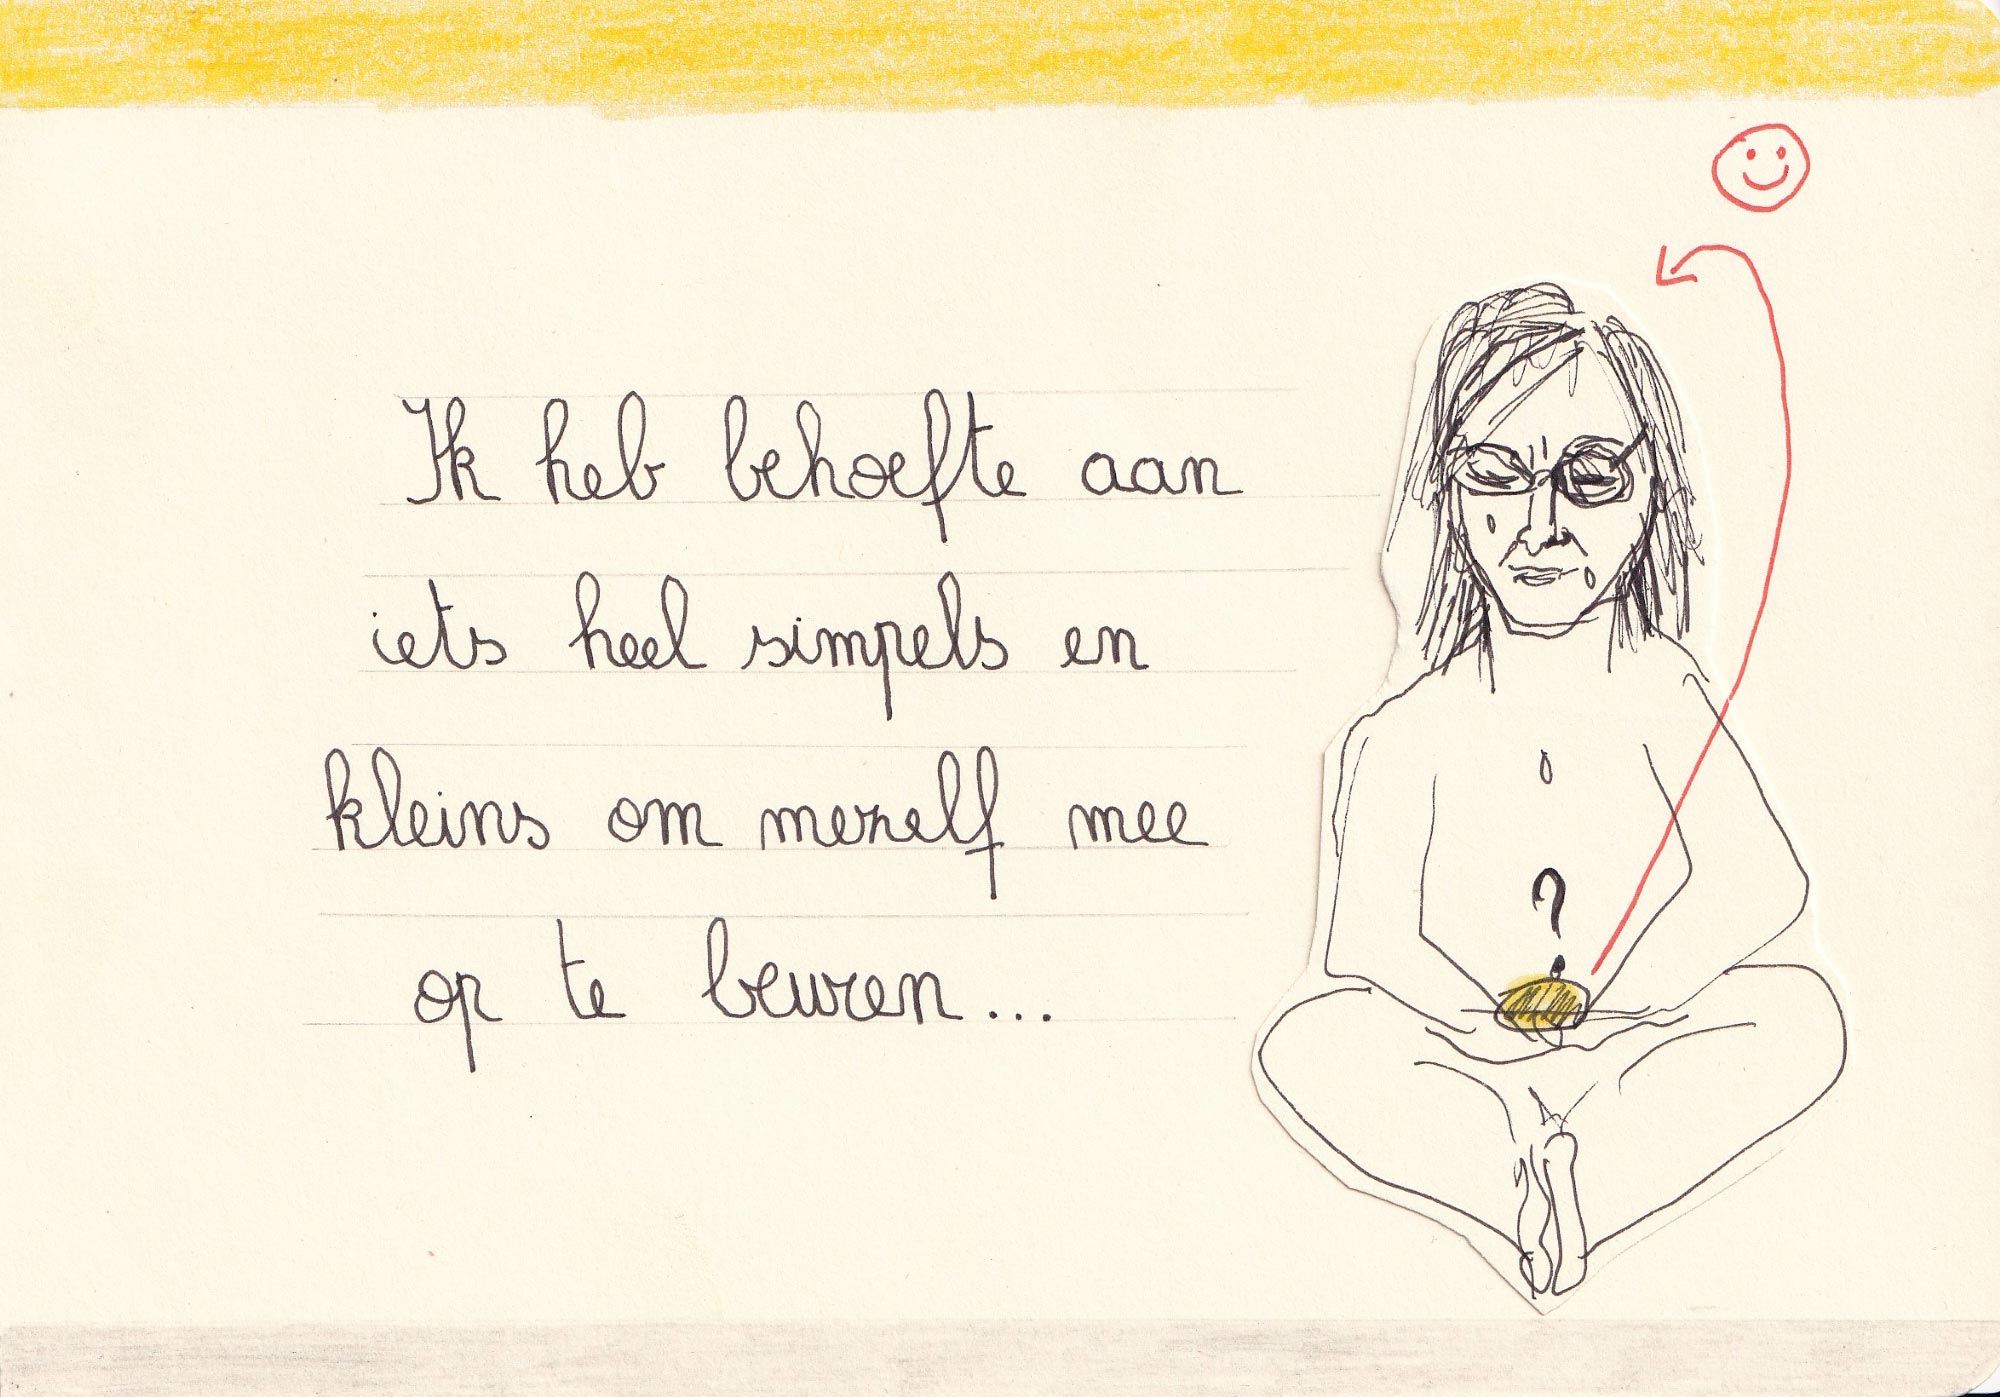 Ik heb behoefte aan
iets heel simpels en
kleins om mezelf mee
op te beuren...
?